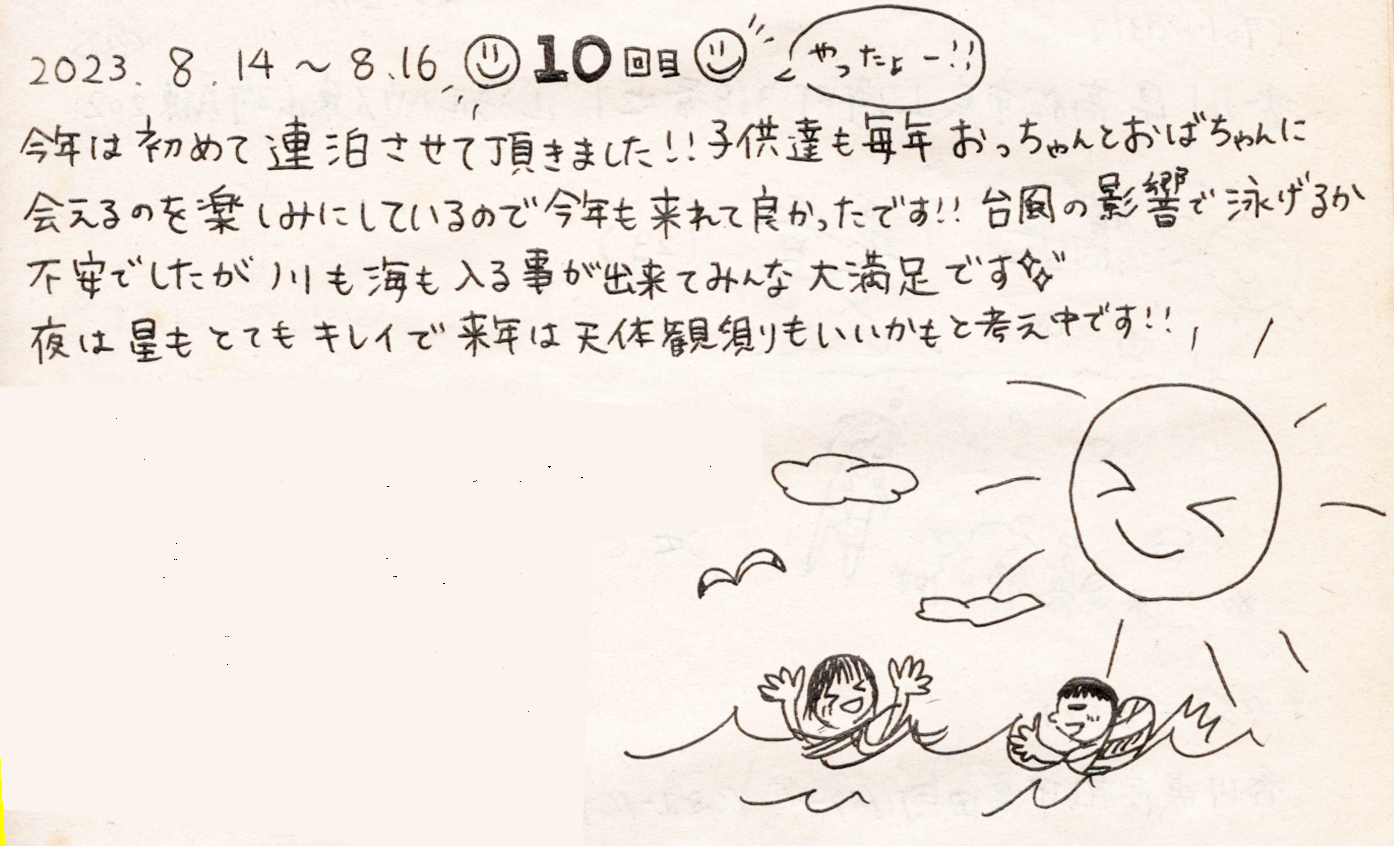 2023. 8. 14 〜 8.16 10回目 やったょー!!
今年は初めて連泊させて頂きました!!子供達も毎年おっちゃんとおばちゃんに
会えるのを楽しみにしているので今年も来れて良かったです!!台風の影響で泳げるか
不安でしたが川も海も入る事が出来てみんな大満足です
夜は星もとてもキレイで来年は天体観測りもいいかもと考え中です!!